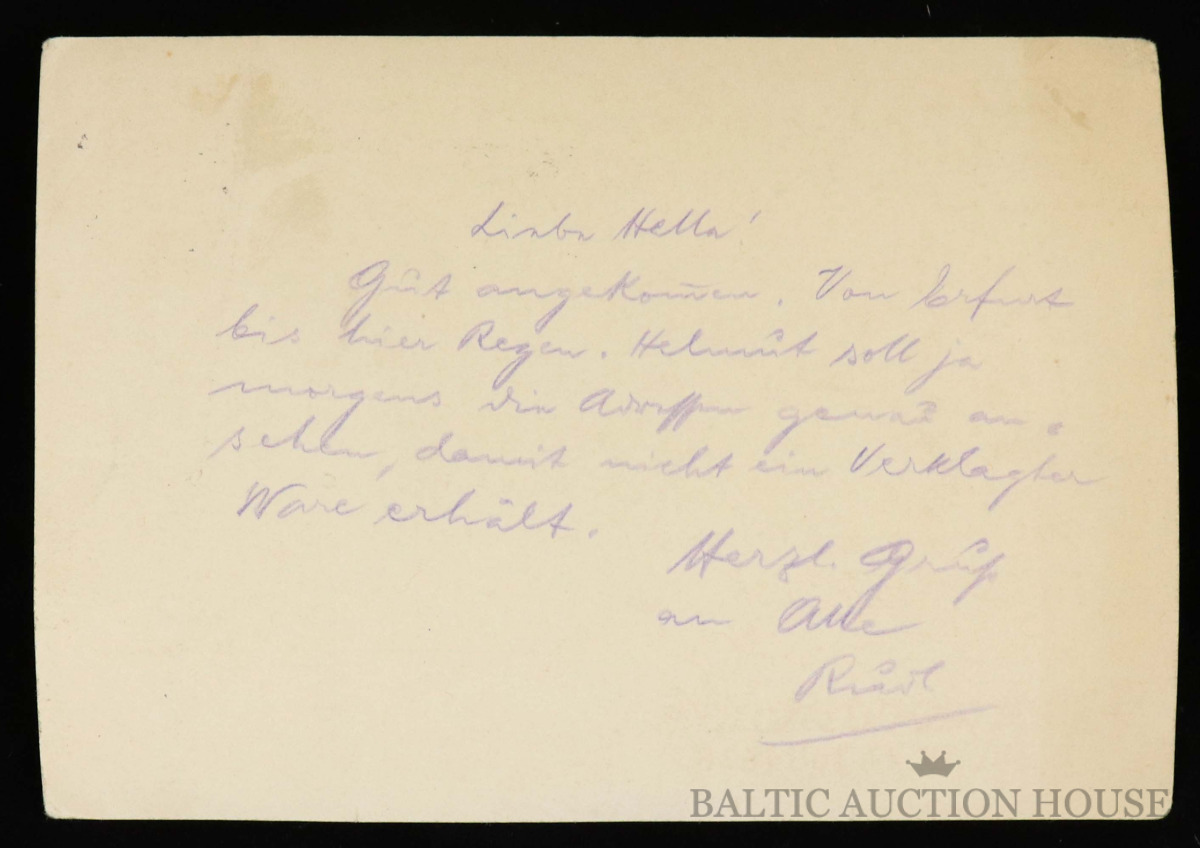 Liebe Hella!
Gut angekom̅en. Von Erfurt
bis hier Regen. Helmut soll ja
morgens die Adressen genau an=
sehen, damit nicht ein Verklagter
Ware erhält.
Herzl. Gruß
an Alle
BALTIC AUCTION HOUSE